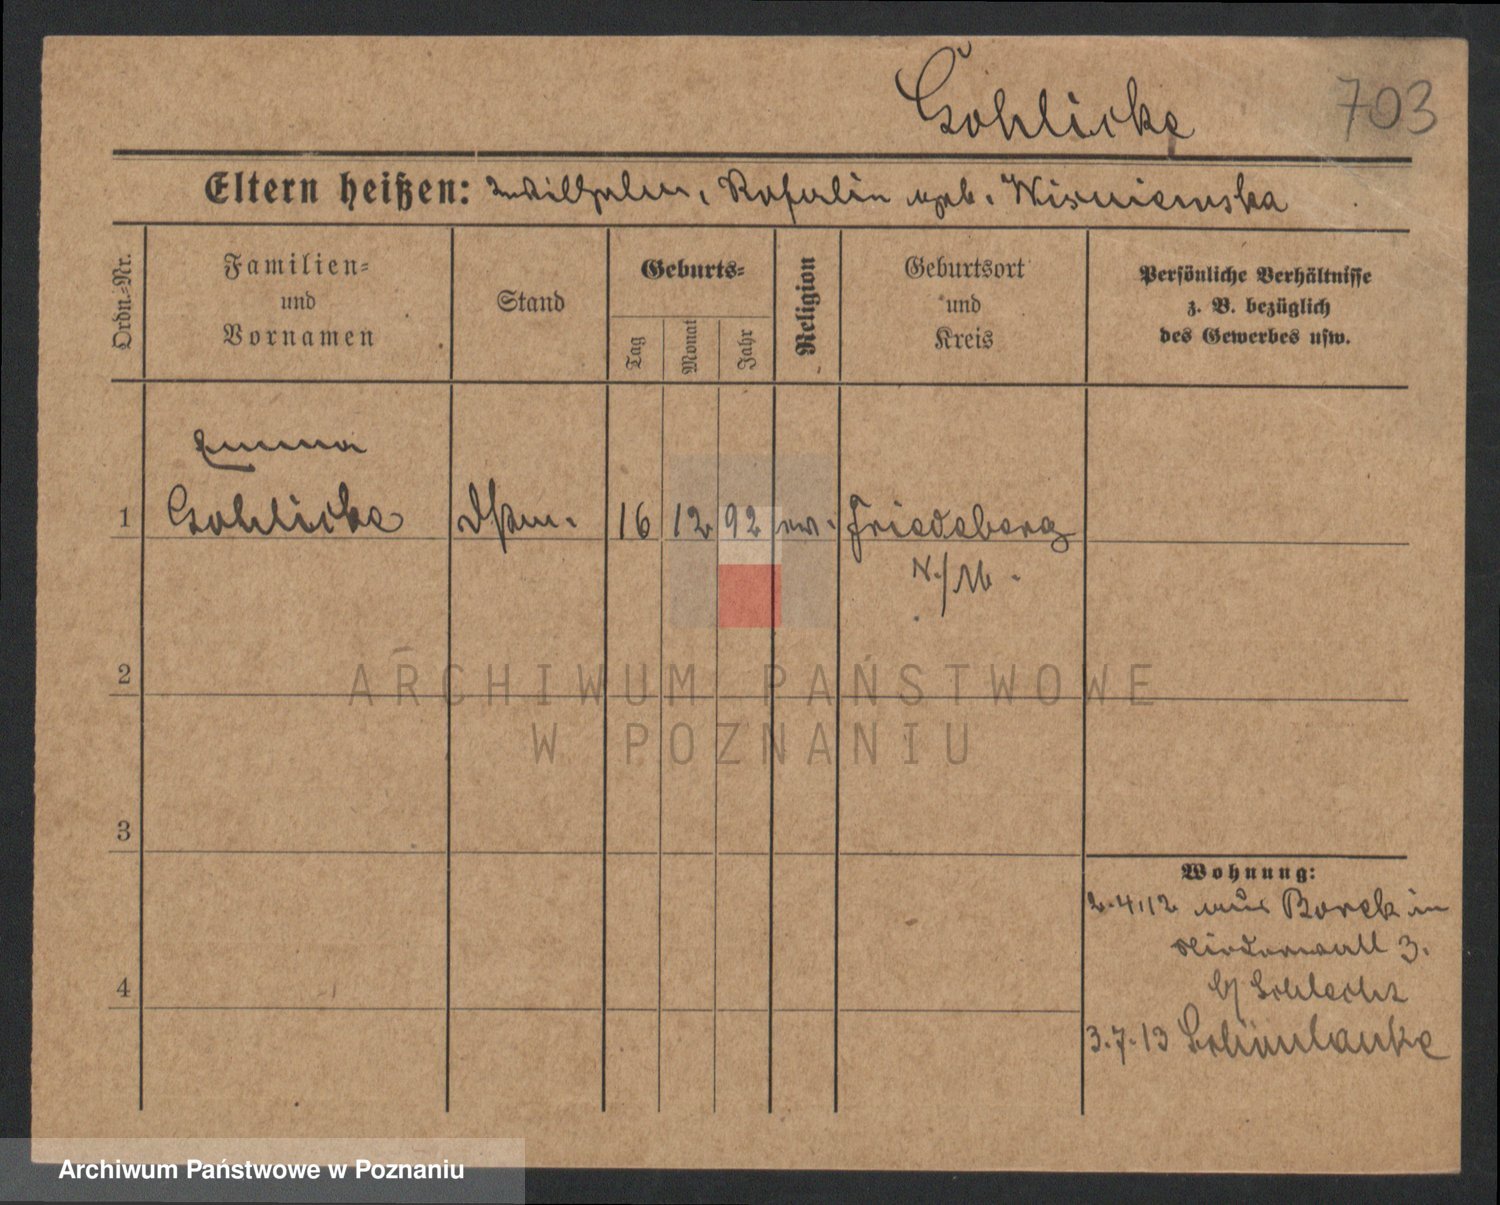 Gohlicke 703
Eltern heißen: Wilhelm, geb. Wisniewska
Ordn.-Nr.
Familien-
und
Vornamen
Stand
Geburts-
Tag
Monat
Jahr
Religion
Geburtsort
und
Kreis
Persönliche Verhältnisse
z. B. bezüglich
des Gewerbes usw.
Emma
1 Gohlicke 16 12 92 ev. Friedeberg
N./M.
2
ARCHIWUM PAŃSTWOWE
W POZNANIU
3
Wohnung:
2.4.12 aus Borek in
Niederwall 3.
b/ Schlecht
4
3.7.13 Schönlanke
Archiwum Państwowe w Poznaniu